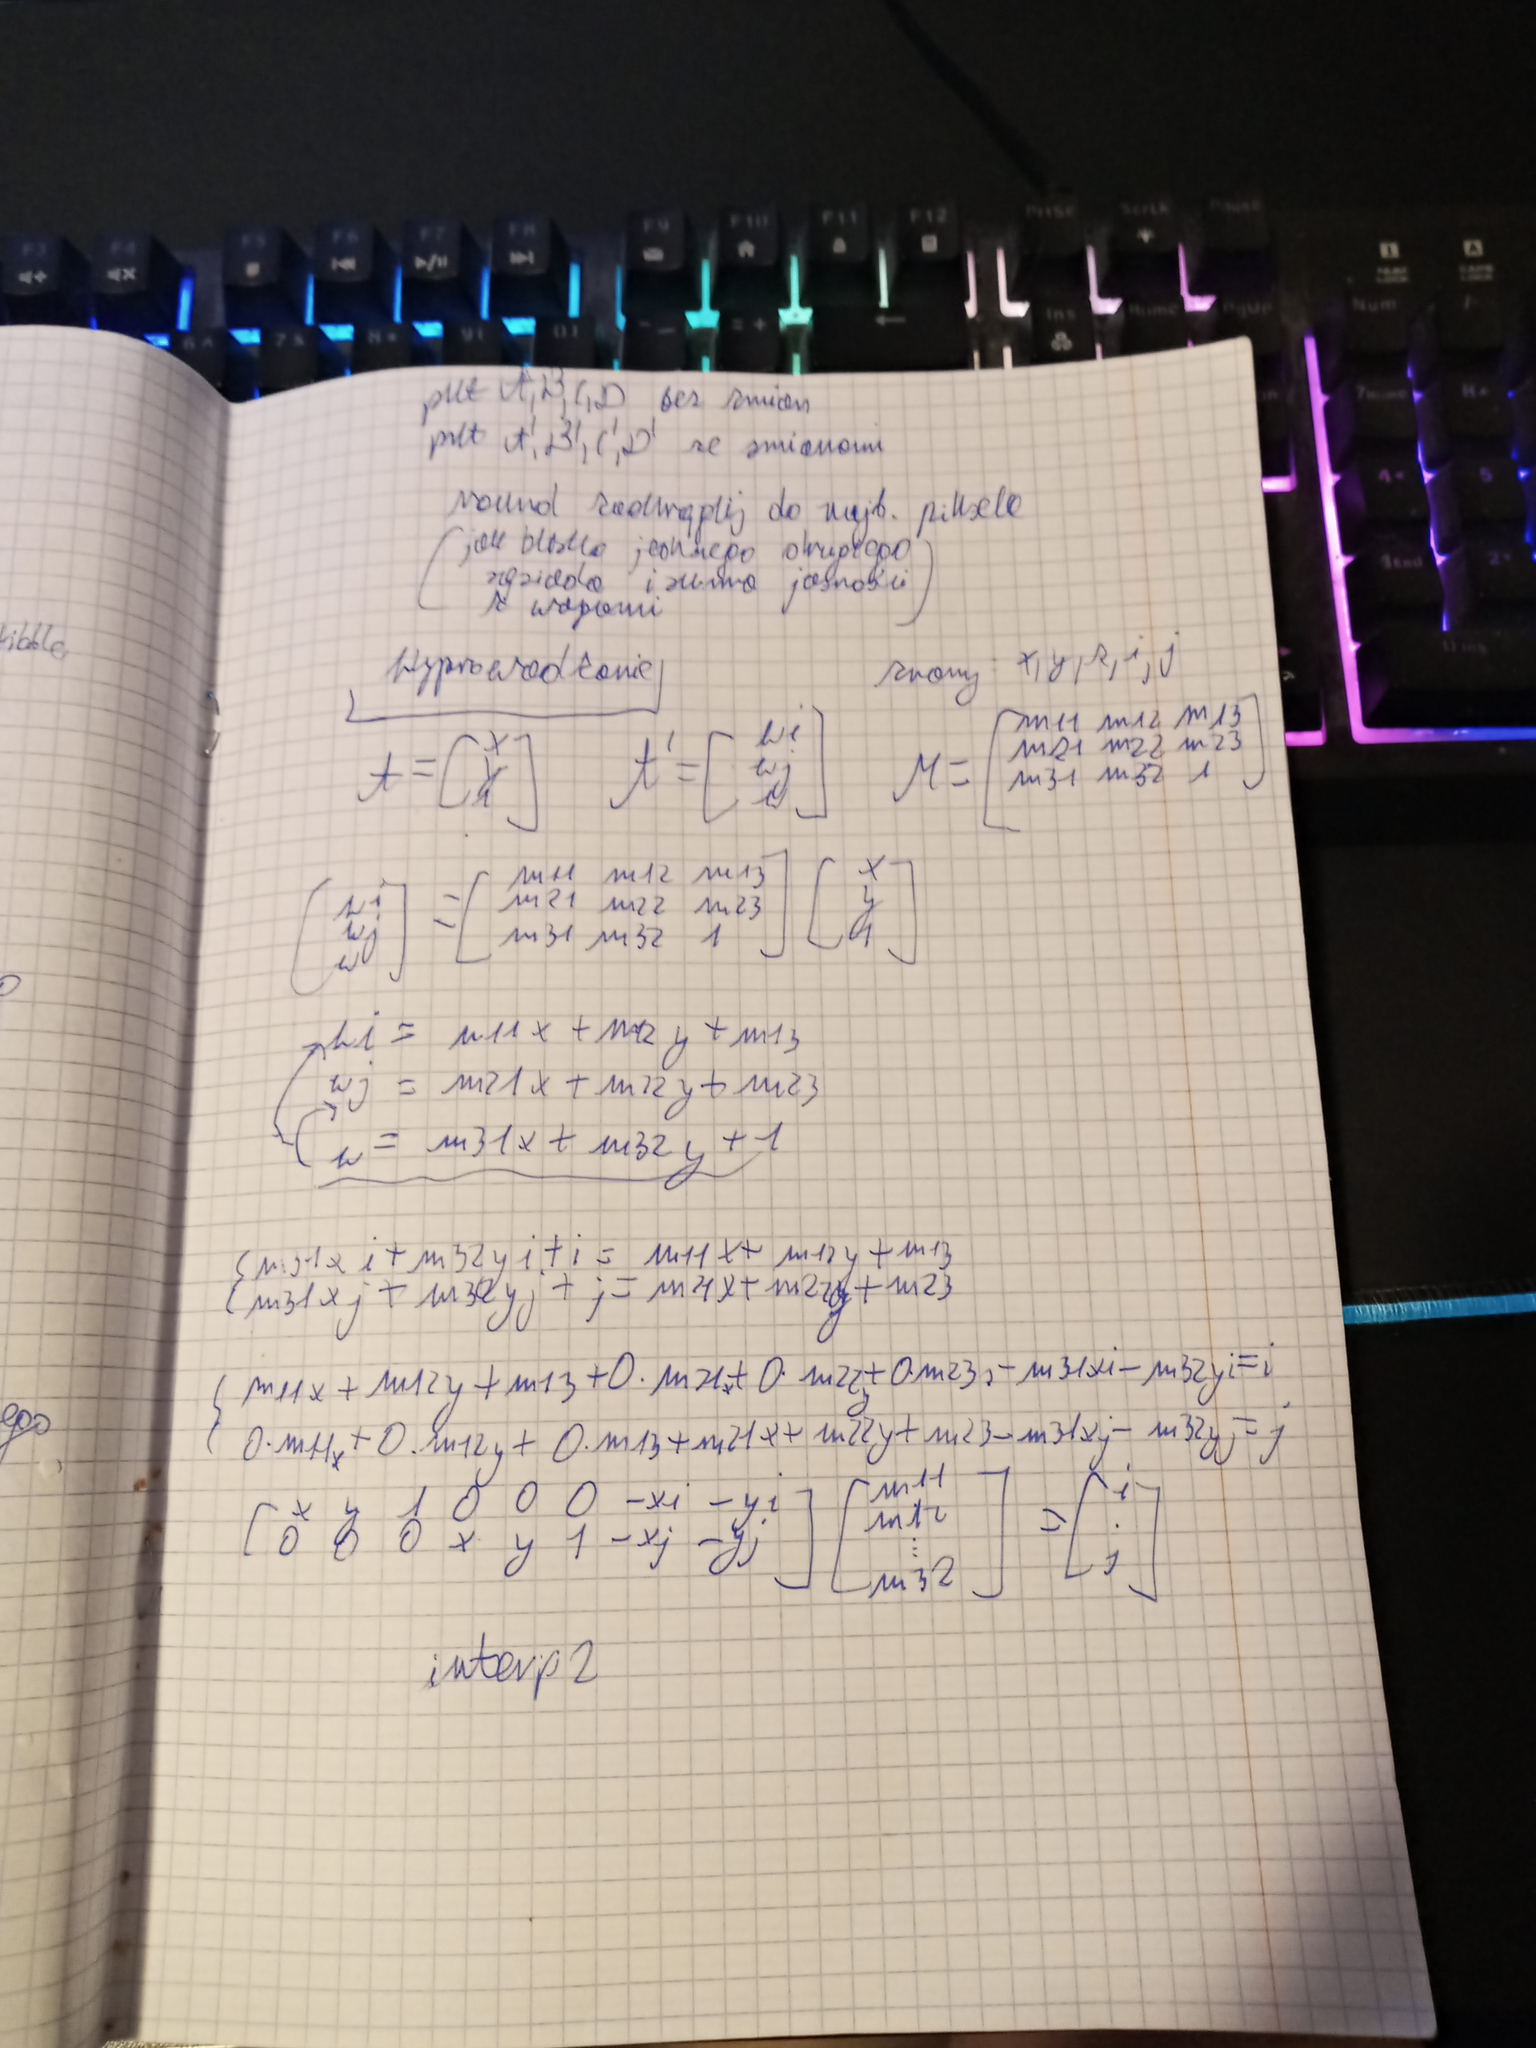 F3
F4
F5
F6
F7
F8
F9
F10
F11
F12
PrtSc
ScrLk
Pause
Ins
Home
PgUp
Num
pkt A, B, C, D bez zmian
pkt A', B', C', D' ze zmianami
round zaokrąglij do najb. piksela
(jak blisko jednego drugiego
sąsiada i suma jasności
z wagami)
Wyprowadzenie
znamy: x, y, z, i, j
A = [x y 1]
A' = [wi wj w]
M = [m11 m12 m13
m21 m22 m23
m31 m32 1]
[wi wj w] = [m11 m12 m13
m21 m22 m23
m31 m32 1] [x y 1]
wi = m11x + m12y + m13
wj = m21x + m22y + m23
w = m31x + m32y + 1
{m31xi + m32yi + i = m11x + m12y + m13
{m31xj + m32yj + j = m21x + m22y + m23
{m11x + m12y + m13 + 0·m21x + 0·m22y + 0·m23 - m31xi - m32yi = i
0·m11x + 0·m12y + 0·m13 + m21x + m22y + m23 - m31xj - m32yj = j
[x y 1 0 0 0 -xi -yi
0 0 0 x y 1 -xj -yj] [m11 m12 ... m32] = [i . j]
interp2